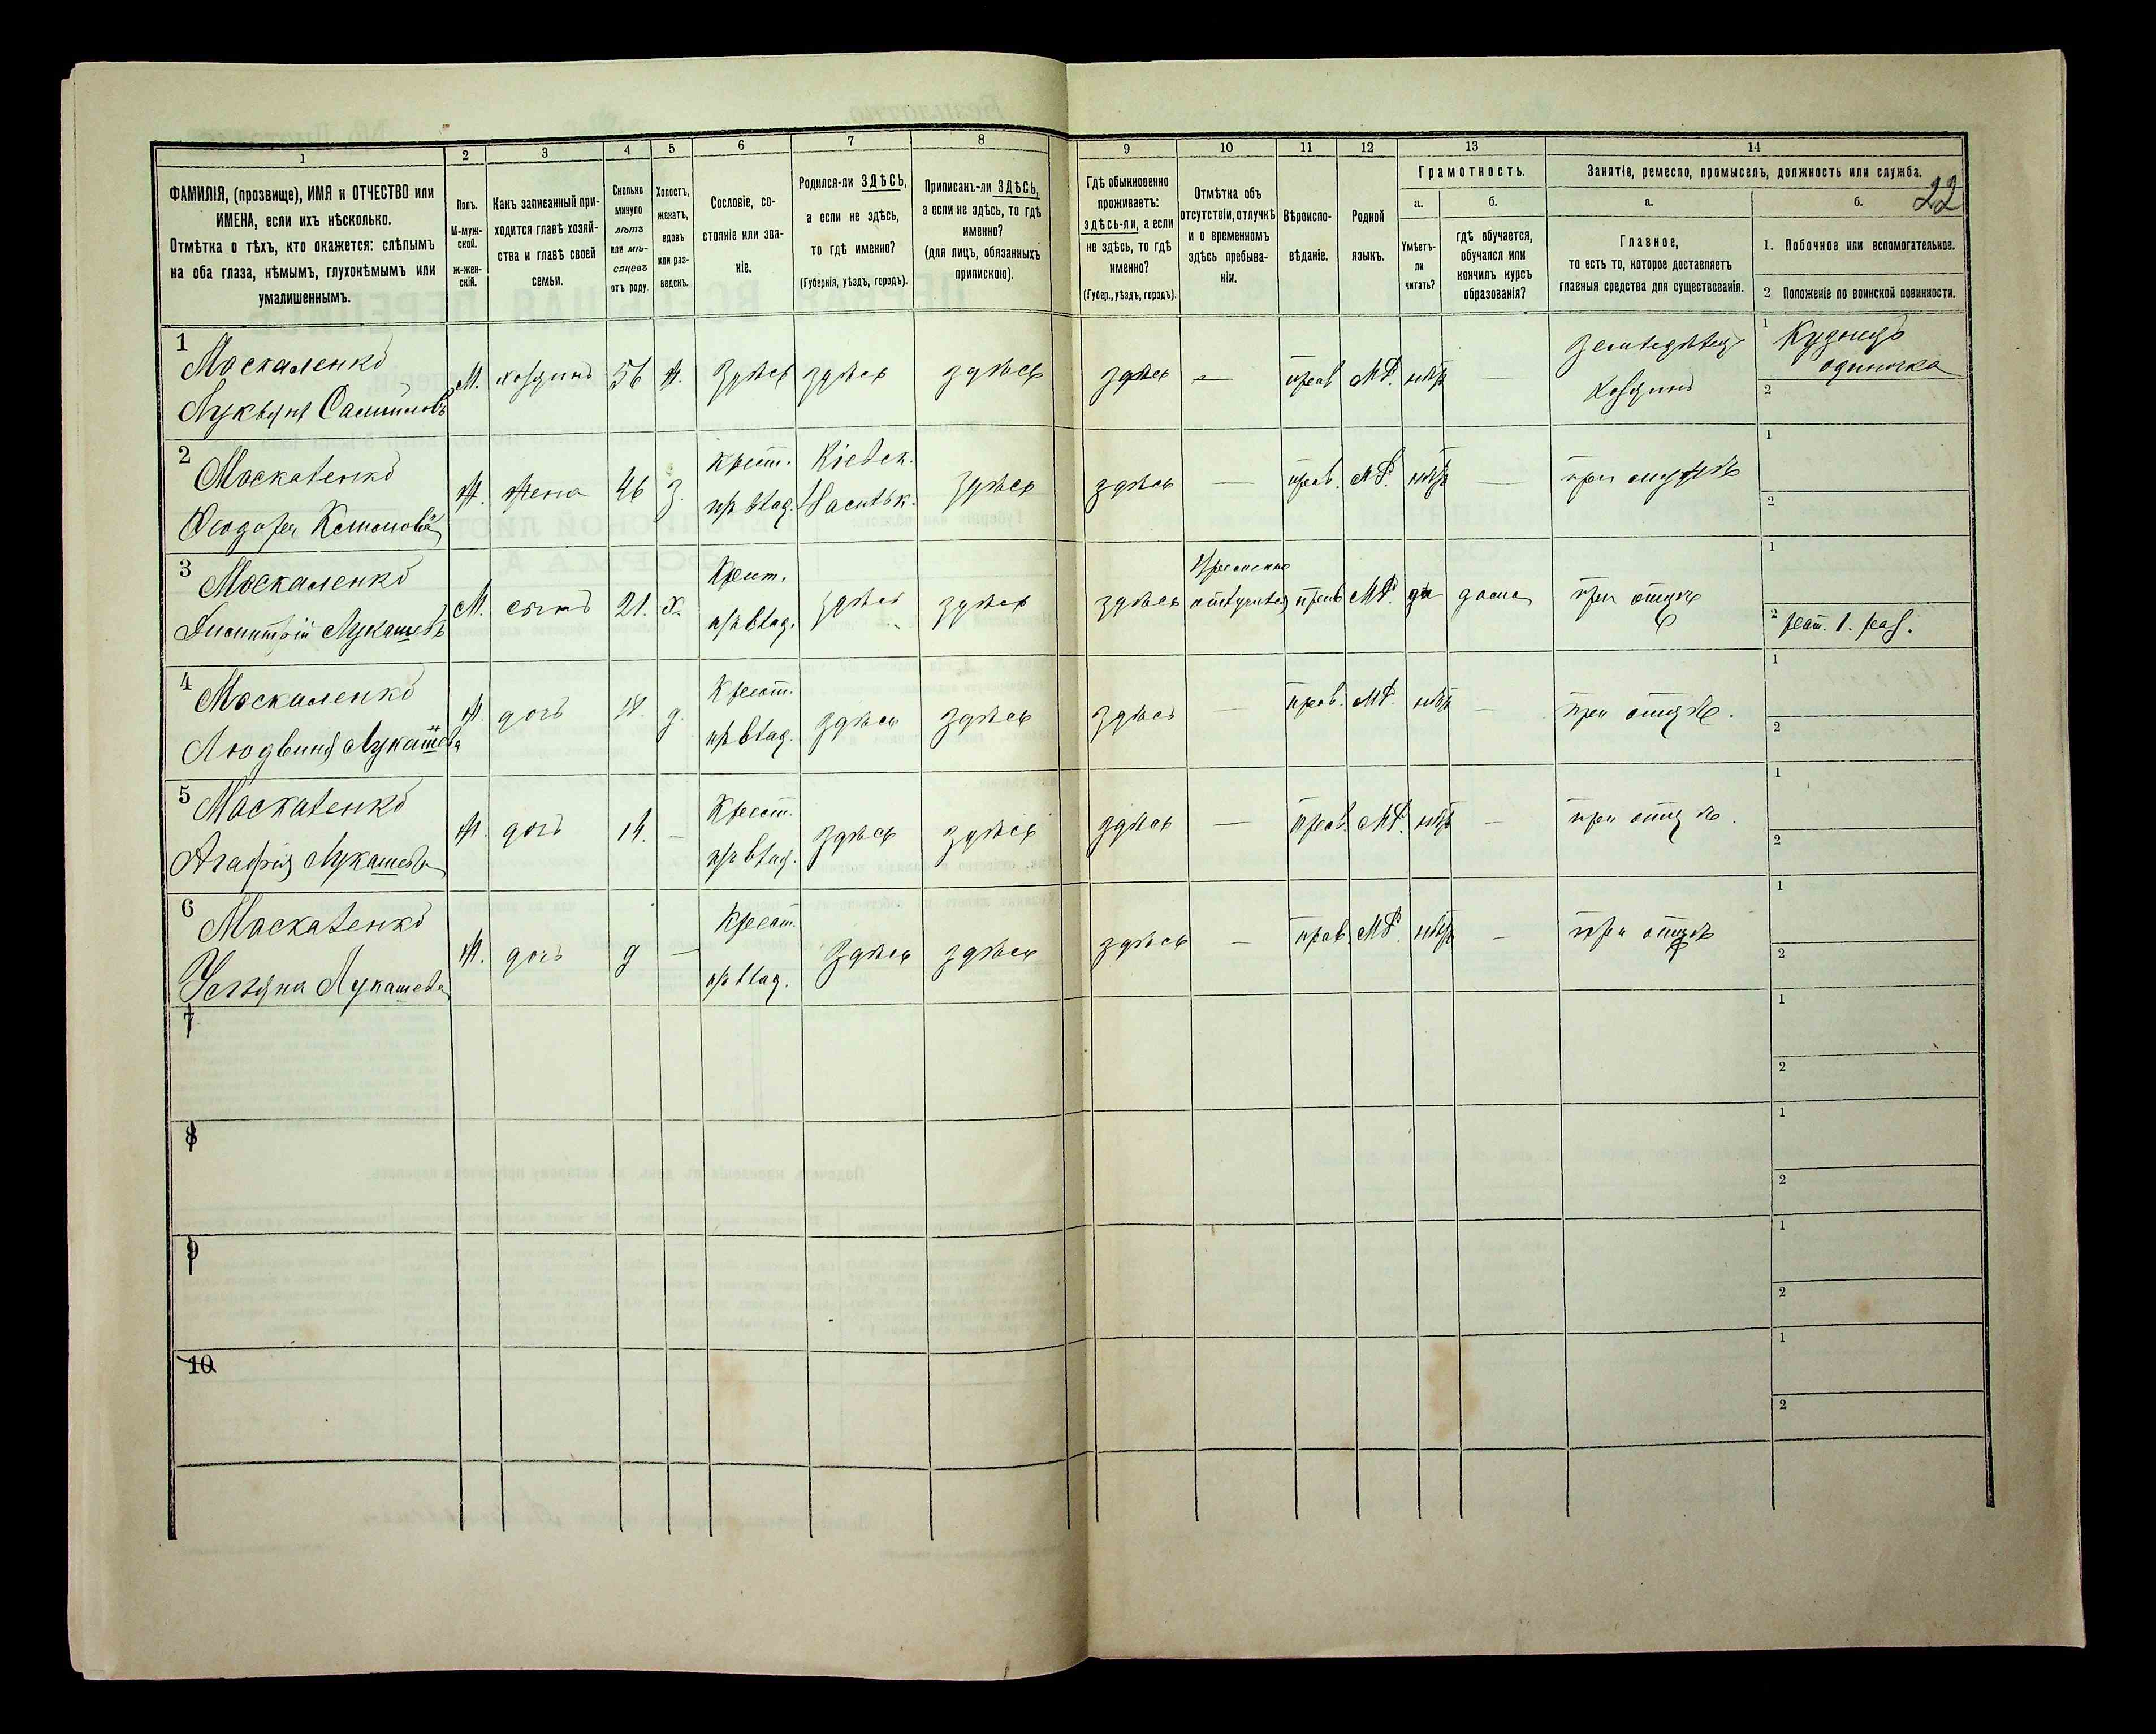 1 2 3 4 5 6 7 8 9 10 11 12 13 14
22
ФАМИЛІЯ, (прозвище), ИМЯ и ОТЧЕСТВО или
ИМЕНА, если ихъ нѣсколько.
Отмѣтка о тѣхъ, кто окажется: слѣпымъ
на оба глаза, нѣмымъ, глухонѣмымъ или
умалишеннымъ.
Полъ.
М-муж-
ской.
ж-жен-
скій.
Какъ записанный при-
ходится главѣ хозяй-
ства и главѣ своей
семьи.
Сколько
минуло
лѣтъ
или мѣ-
сяцевъ
отъ роду.
Холостъ,
женатъ,
вдовъ
или раз-
веденъ.
Сословіе, со-
стояніе или зва-
ніе.
Родился-ли ЗДѢСЬ,
а если не здѣсь,
то гдѣ именно?
(Губернія, уѣздъ, городъ).
Приписанъ-ли ЗДѢСЬ,
а если не здѣсь, то гдѣ
именно?
(для лицъ, обязанныхъ
припискою).
Гдѣ обыкновенно
проживаетъ:
здѣсь-ли, а если
не здѣсь, то гдѣ
именно?
(Губер., уѣздъ, городъ).
Отмѣтка объ
отсутствіи, отлучкѣ
и о временномъ
здѣсь пребыва-
ніи.
Вѣроиспо-
вѣданіе.
Родной
языкъ.
Грамотность.
а.
Умѣетъ-
ли
читать?
б.
гдѣ обучается,
обучался или
кончилъ курсъ
образованія?
Занятіе, ремесло, промыселъ, должность или служба.
а.
Главное,
то есть то, которое доставляетъ
главныя средства для существованія.
б.
1. Побочное или вспомогательное.
2 Положеніе по воинской повинности.
1 Москаленко
М. хозяинъ 56 ж. здѣсь здѣсь здѣсь здѣсь — прав. МР. нѣтъ — Земледѣлецъ
хозяинъ
1 Кузнецъ
одиночка
2
2 Москаленко
Ж. жена 46 з. крест. Кіевск. здѣсь здѣсь — прав. МР. нѣтъ — при мужѣ
пр. влад. Васильк.
1
2
3 Москаленко
Дмитрій Лукашевъ
М. сынъ 21. х. Крест. здѣсь здѣсь здѣсь Временно прав. МР. да дома при отцѣ
пр. влад. отлучился
1
2 рат. 1. раз.
4 Москаленко
Ж. дочь 18. д. Крест. здѣсь здѣсь здѣсь — прав. МР. нѣтъ — при отцѣ.
пр. влад.
1
2
5 Москаленко
Агафія Лукашева
Ж. дочь 14. — Крест. здѣсь здѣсь здѣсь — прав. МР. нѣтъ — при отцѣ.
пр. влад.
1
2
6 Москаленко
Ульяна Лукашева
Ж. дочь 9 — Крест. здѣсь здѣсь здѣсь — прав. МР. нѣтъ — при отцѣ
пр. влад.
1
2
7
1
2
8
1
2
9
1
2
10
1
2